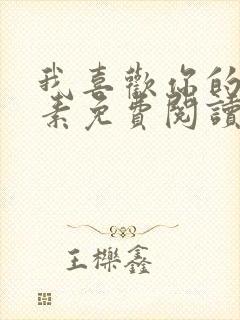 我喜歡你的
素免費閱讀
王櫟鑫